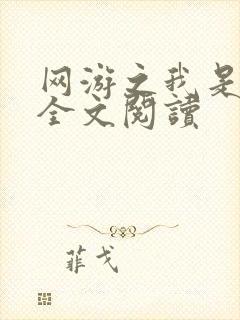 网游之我是
全文閱讀
菲戈